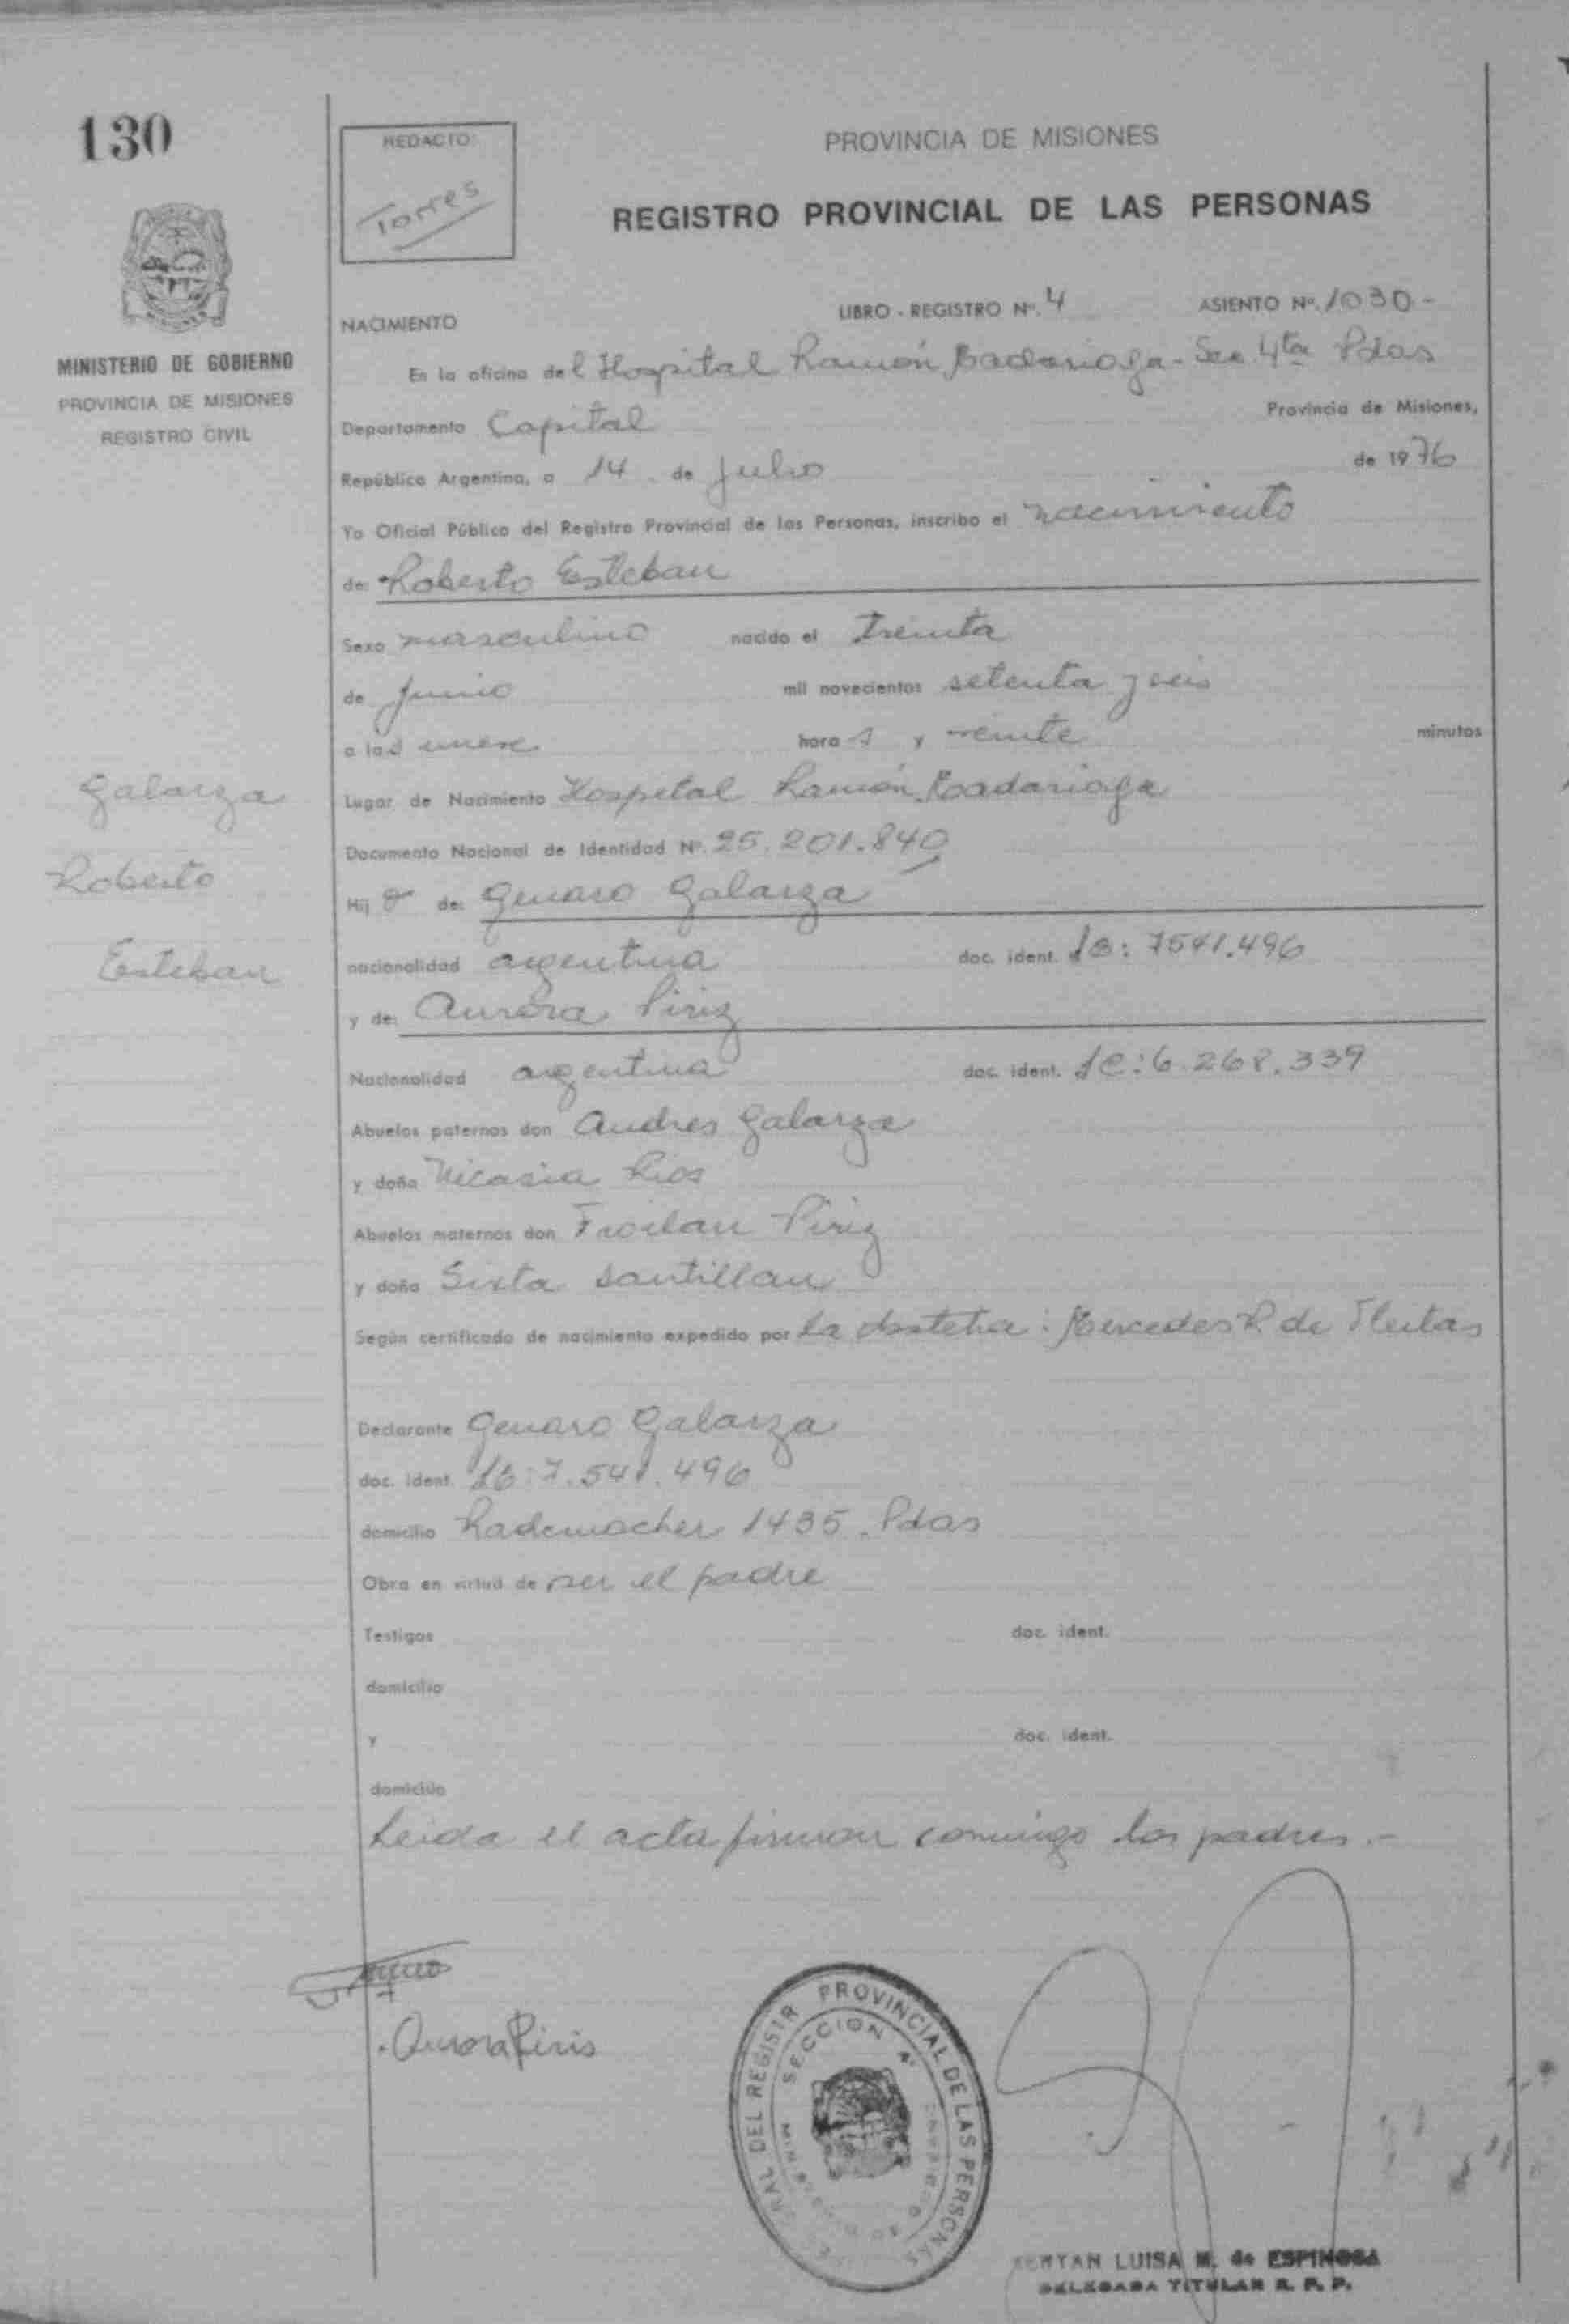 130
REDACTO:
Torres
PROVINCIA DE MISIONES
REGISTRO PROVINCIAL DE LAS PERSONAS
MINISTERIO DE GOBIERNO
PROVINCIA DE MISIONES
REGISTRO CIVIL
NACIMIENTO
LIBRO - REGISTRO Nº. 4
ASIENTO Nº. 1030 -
En la oficina del Hospital Ramón Madariaga - Sec 4ta Pdas
Departamento Capital
Provincia de Misiones,
República Argentina, a 14 de Julio de 1976
Yo Oficial Público del Registro Provincial de las Personas, inscribo el nacimiento
de: Roberto Esteban
Sexo masculino nacido el treinta
de junio mil novecientos setenta y seis
a las once horas y veinte minutos
Lugar de Nacimiento Hospital Ramón Madariaga
Documento Nacional de Identidad Nº. 25.201.840
Hijo de: Genaro Galarza
nacionalidad argentina doc. ident. 7541.496
y de: Aurora Piriz
Nacionalidad argentina doc. ident. LC: 6.268.339
Abuelos paternos don Andres Galarza
y doña Nicasia Rios
Abuelos maternos don Froilan Piriz
y doña Sixta Santillan
Según certificado de nacimiento expedido por La obstetra: Mercedes R de Fleitas
Galarza
Roberto
Esteban
Declarante Genaro Galarza
doc. ident. 7.541.496
domicilio Rademacher 1435. Pdas
Obra en virtud de ser el padre
Testigos doc. ident.
domicilio
y doc. ident.
domicilio
Leida el acta firman conmigo los padres.-
Aurora Piris
RAL DEL REGISTR PROVINCIAL DE LAS PERSONAS
SECCION 4ª
LUISA M. de ESPINOSA
DELEGADA TITULAR R. P. P.